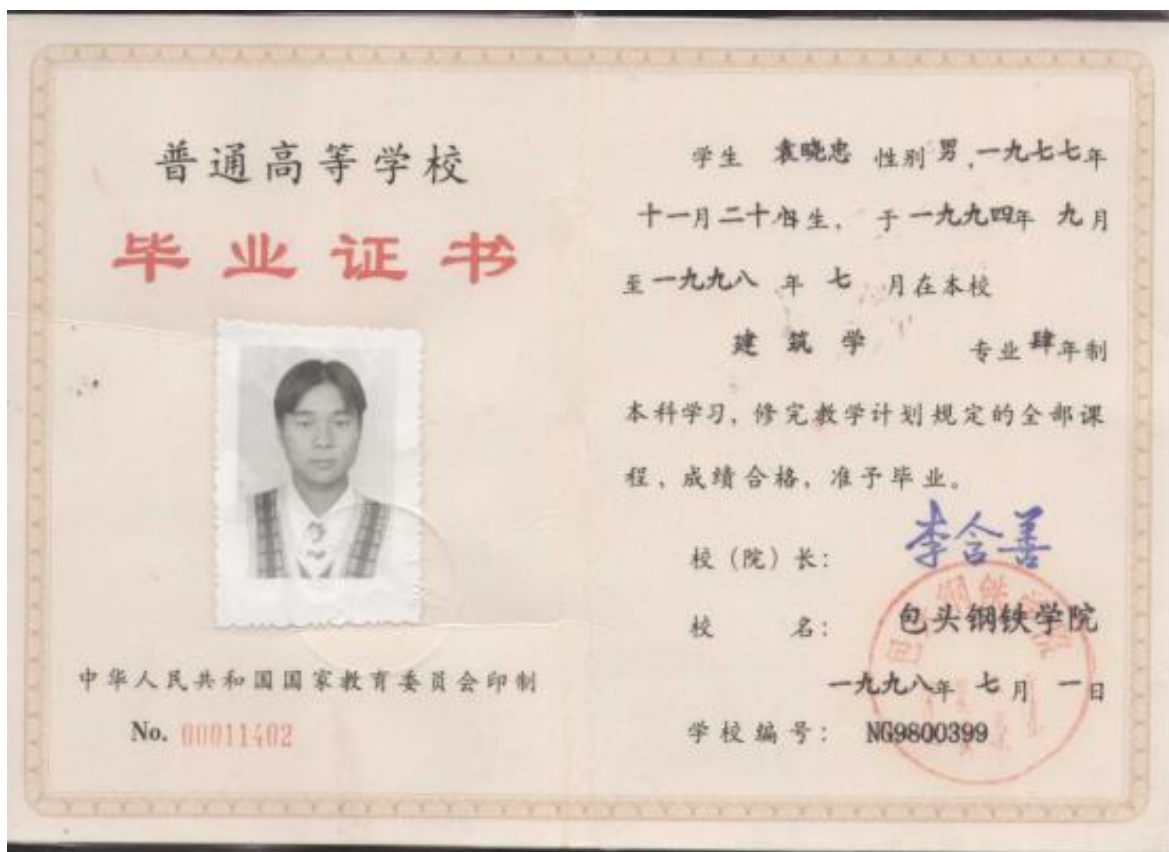 普通高等学校
毕业证书
中华人民共和国国家教育委员会印制
No. 00011402
学生 袁晓忠 性别 男,一九七七年
十一月二十 日生, 于一九九四年 九月
至一九九八 年 七 月在本校
建 筑 学 专业肆年制
本科学习, 修完教学计划规定的全部课
程, 成绩合格, 准予毕业。
校(院)长: 李含善
校 名: 包头钢铁学院
一九九八年 七 月 一日
学校编号: NG9800399